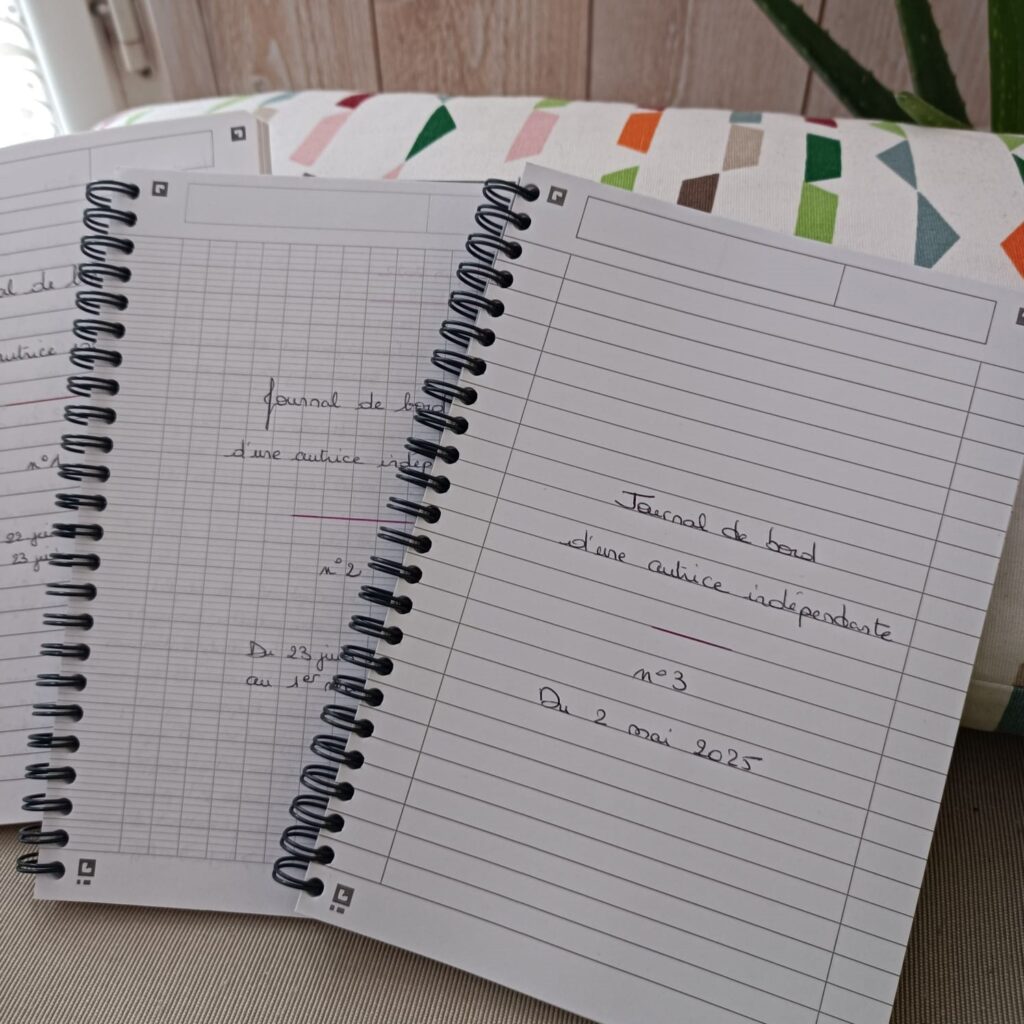 al de
autrice
n°1
22 jui
23 jui
Journal de bord
d'une autrice indép
n°2
Du 23 jui
au 1er
Journal de bord
d'une autrice indépendante
n°3
Du 2 mai 2025